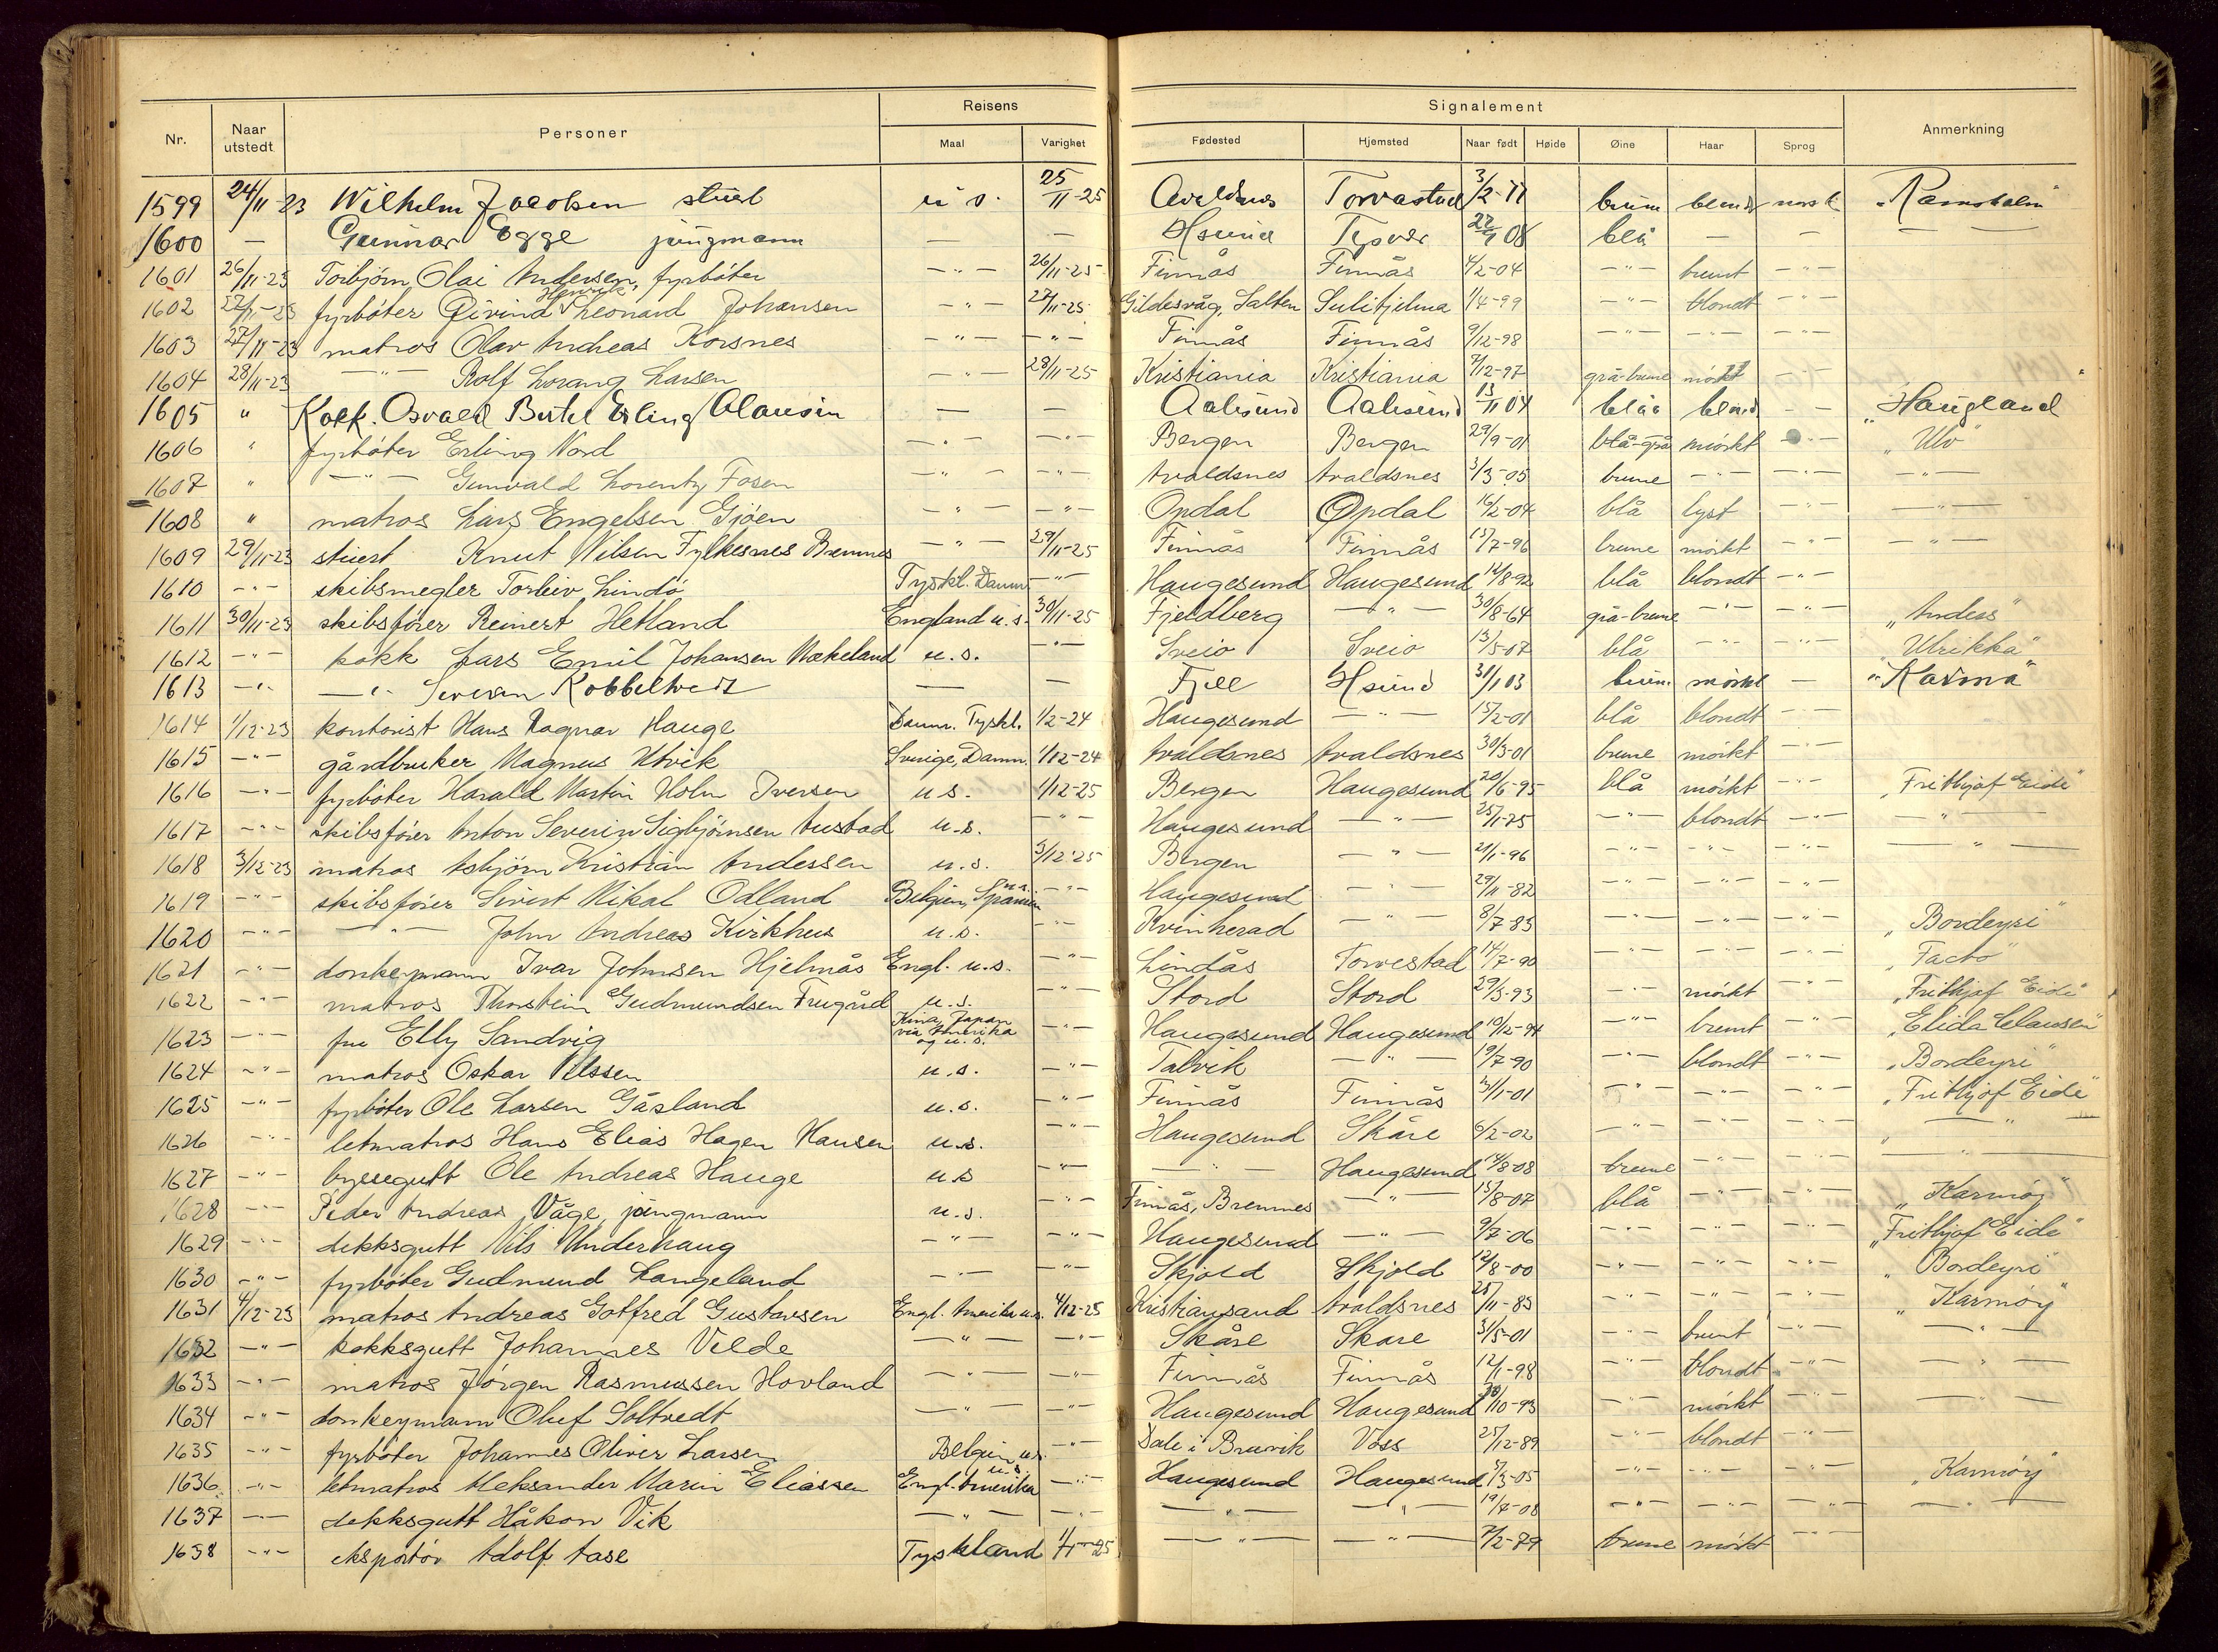 Reisens
Signalement
Nr. Naar utstedt Personer Maal Varighet Fødested Hjemsted Naar født Høide Øine Haar Sprog Anmerkning
1599 24/11-23 Wilhelm Jacobsen stuert u s. 25/11-25 Avaldsnes Torvastad 3/2-11 brune blond norsk "Ramsholm"
1600 — Gunnar Egge jungmann — — Hsund Tysvær 22/9 08 blå — — — —
1601 26/11-23 Torbjørn Olai Andersen, fyrbøter —"— 26/11-25 Finnås Finnås 4/2-04 —"— brunt —"—
1602 27/11-23 fyrbøter Øivind Henrik Leonard Johansen —"— 27/11-25 Gildesvåg, Salten Sulitjelma 1/4-99 —"— blondt —"—
1603 27/11-23 matros Olav Andreas Korsnes —"— —"— Finnås Finnås 9/12-98 —"— —"— —"—
1604 28/11-23 —"— Rolf Lorang Larsen —"— 28/11-25 Kristiania Kristiania 7/12-97 grå-brune mörkt —"—
1605 " Kokk. Osvald Bertel Erling Clausen — — Aalesund Aalesund 13/11 04 blåe blond — "Haugland"
1606 " fyrbøter Erling Nord —"— —"— Bergen Bergen 29/9-01 blå-grå mörkt —"— "Ulv"
1607 " —"— Gunvald Lorentz Fosen —"— —"— Avaldsnes Avaldsnes 3/3-05 brune —"— —"— —"—
1608 " matros Lars Engelsen Gjöen —"— —"— Opdal Opdal 16/2-04 blå lyst —"— —"—
1609 29/11-23 stuert Knut Nilsen Fylkesnes Bremnes —"— 29/11-25 Finnås Finnås 13/7-96 brune mörkt —"— —"—
1610 —"— skibsmegler Torleiv Lindö Tyskl. Danm. —"— Haugesund Haugesund 14/8-92 blå blondt —"—
1611 30/11-23 skibsförer Reinert Hetland England u.s. 30/11-25 Fjeldberg —"— 30/8-64 grå-brune —"— —"— "Andess"
1612 —"— kokk Lars Emil Johansen Mækeland u.s. —"— Sveio Sveio 13/5-07 blå —"— —"— "Ulrikka"
1613 —"— —"— Severin Kobbeltvedt — — Fjell Hsund 31/1 03 brune mörke — "Karma"
1614 1/12-23 kontorist Hans Ragnar Hauge Danm. Tyskl. 1/2-24 Haugesund —"— 15/2-01 blå blondt —"—
1615 —"— gårdbruker Magnus Utvik Sverige, Danm. 1/12-24 Avaldsnes Avaldsnes 30/3-01 brune mörkt —"—
1616 —"— fyrbøter Harald Martin Holm Iversen u s. 1/12-25 Bergen Haugesund 20/6-95 blå mörkt —"— "Frithjof Eide"
1617 —"— skibsförer Anton Severin Sigbjörnsen Austad u.s. —"— Haugesund —"— 25/1-75 —"— blondt —"— —"—
1618 3/12-23 matros Asbjörn Kristian Andessen u.s. 3/12-25 Bergen —"— 21/1-96 —"— —"— —"— —"—
1619 —"— skibsförer Sivert Mikal Odland Belgien, Spanien u.s. —"— Haugesund —"— 29/11-82 —"— —"— —"—
1620 —"— —"— John Andreas Kirkhus u.s. —"— Kvinherad —"— 8/7-83 —"— —"— —"— "Bordeyri"
1621 —"— donkeymann Ivar Johnsen Hjelmås Engl. u.s. —"— Lindås Torvestad 14/7-90 —"— —"— —"— "Facto"
1622 —"— matros Thorstein Gudmundsen Frugård u.s. —"— Stord Stord 29/3-93 —"— mörkt —"— "Frithjof Eide"
1623 —"— fru Elly Sandvig Kina, Japan via Amerika og u.s. —"— Haugesund Haugesund 10/12-94 —"— brunt —"— "Elida Clausen"
1624 —"— matros Oskar Nilssen u.s. —"— Talvik —"— 19/7-90 —"— blondt —"— "Bordeyri"
1625 —"— fyrbøter Ole Larsen Gåsland u.s. —"— Finnås Finnås 31/1-01 —"— —"— —"— "Frithjof Eide"
1626 —"— letmatros Hans Elias Hagen Hansen u.s. —"— Haugesund Skåre 6/2-02 —"— —"— —"— —"—
1627 —"— byssegutt Ole Andreas Hauge u.s —"— —"— Haugesund 14/8-08 brune —"— —"— —"—
1628 —"— Peder Andreas Våge, jungmann u.s. —"— Finnås, Bremnes —"— 15/8-07 blå —"— —"— "Karmøy"
1629 —"— dekksgutt Nils Underhaug —"— —"— Haugesund —"— 9/7-06 —"— —"— —"— "Frithjof Eide"
1630 —"— fyrbøter Gudmund Langeland —"— —"— Skjold Skjold 12/8-00 —"— —"— —"— "Bordeyri"
1631 4/12-23 matros Andreas Gotfred Gustavsen Engl. Amerika u.s. 4/12-25 Kristiansand Avaldsnes 25/11-83 —"— —"— —"— "Karmøy"
1632 —"— kokksgutt Johannes Velde —"— —"— Skåre Skåre 31/5-01 —"— brunt —"— —"—
1633 —"— matros Jörgen Rasmussen Hovland —"— —"— Finnås Finnås 12/1-98 —"— blondt —"— —"—
1634 —"— donkeymann Oluf Soltvedt —"— —"— Haugesund Haugesund /10-93 mörkt —"— —"—
1635 —"— fyrbøter Johannes Oliver Larsen Belgien u.s. —"— Dale i Bruvik Voss 25/12-89 blondt —"—
1636 —"— letmatros Aleksander Marin Eliassen Engl. Amerika u.s. —"— Haugesund Haugesund 5/3-05 —"— —"— —"— "Karmøy"
1637 —"— dekksgutt Håkon Vik —"— —"— —"— —"— 19/7-08 —"— —"— —"— —"—
1638 —"— eksportör Adolf Aase Tyskland —"— —"— 7/2-79 brune mörkt —"—